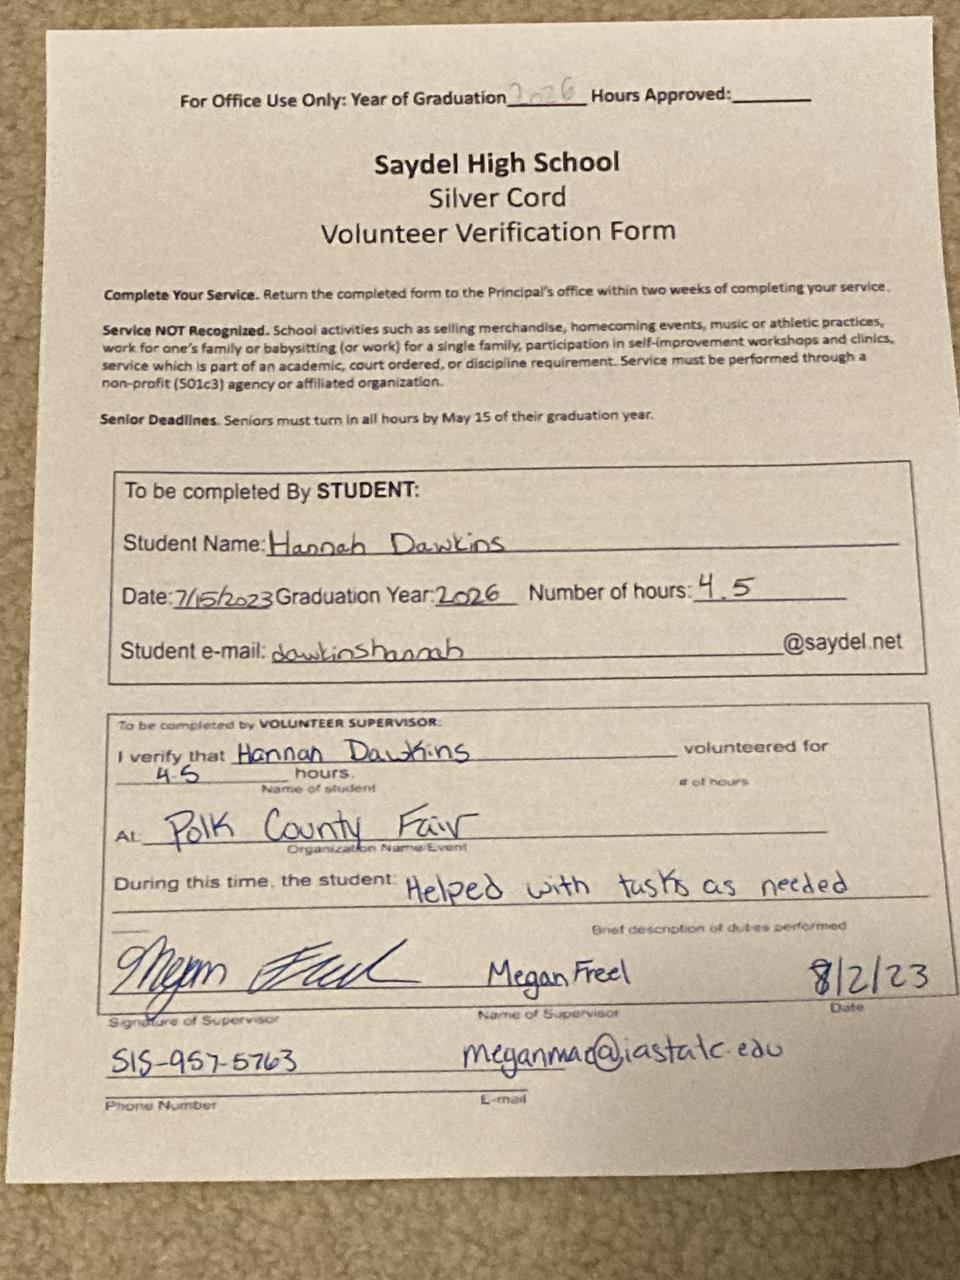 For Office Use Only: Year of Graduation 2026 Hours Approved:
Saydel High School
Silver Cord
Volunteer Verification Form
Complete Your Service. Return the completed form to the Principal's office within two weeks of completing your service.
Service NOT Recognized. School activities such as selling merchandise, homecoming events, music or athletic practices,
work for one's family or babysitting (or work) for a single family, participation in self-improvement workshops and clinics,
service which is part of an academic, court ordered, or discipline requirement. Service must be performed through a
non-profit (501c3) agency or affiliated organization.
Senior Deadlines. Seniors must turn in all hours by May 15 of their graduation year.
To be completed By STUDENT:
Student Name: Hannah Dawkins
Date: 7/15/2023 Graduation Year: 2026 Number of hours: 4.5
Student e-mail: dawkinshannah @saydel.net
To be completed by VOLUNTEER SUPERVISOR:
I verify that Hannah Dawkins volunteered for
4.5 hours.
Name of student # of hours
At: Polk County Fair
Organization Name/Event
During this time, the student: Helped with tasks as needed
Brief description of duties performed
Megan Freel Megan Freel 8/2/23
Signature of Supervisor Name of Supervisor Date
515-957-5763 meganmac@iastate.edu
Phone Number E-mail